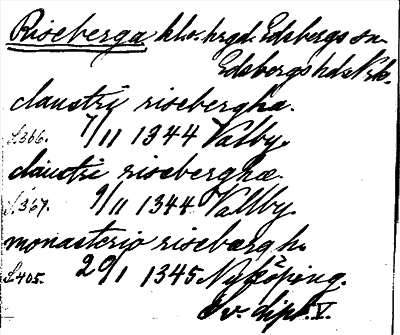 Riseberga klo. hrgd. Edsbergs sn.
Edsbergs hd. Nrk.
claustri risebergha.
s. 366. 7/11 1344 Valby.
claustri riseberghæ
s. 367. 9/11 1344 Vallby.
monasterio risebærgh.
s. 405. 29/1 1345 Nyköping.
Sv. dipl. V.